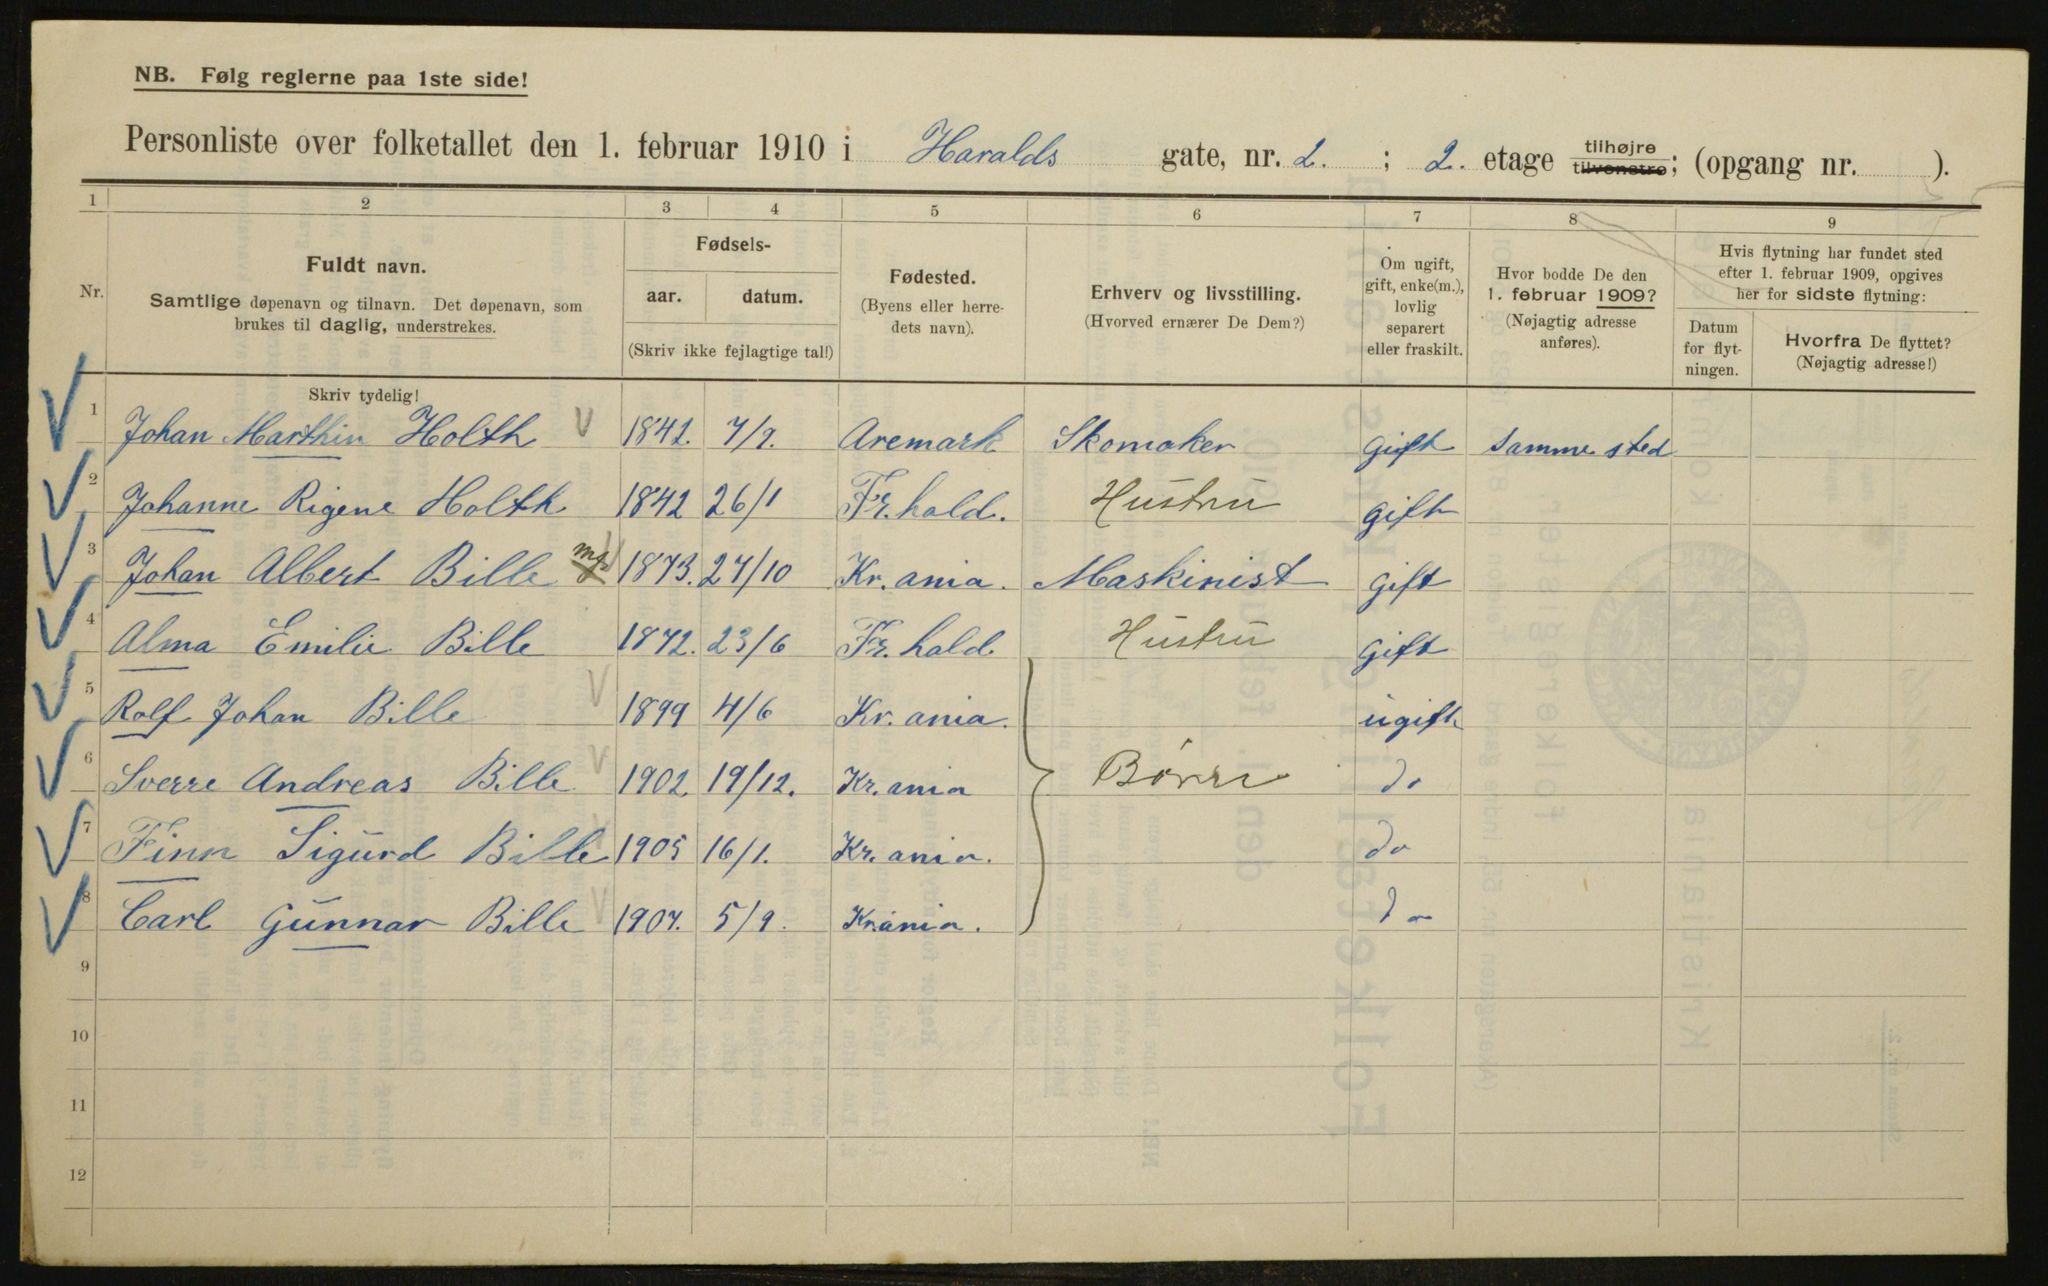 NB. Følg reglerne paa 1ste side!
Personliste over folketallet den 1. februar 1910 i Haralds gate, nr. 2. ; 2. etage tilhøjre tilvenstre; (opgang nr. ).
1 2 3 4 5 6 7 8 9
Nr.
Fuldt navn.
Samtlige døpenavn og tilnavn. Det døpenavn, som
brukes til daglig, understrekes.
Fødsels-
aar. datum.
(Skriv ikke fejlagtige tal!)
Fødested.
(Byens eller herre-
dets navn).
Erhverv og livsstilling.
(Hvorved ernærer De Dem?)
Om ugift,
gift, enke(m.),
lovlig
separert
eller fraskilt.
Hvor bodde De den
1. februar 1909?
(Nøjagtig adresse
anføres).
Hvis flytning har fundet sted
efter 1. februar 1909, opgives
her for sidste flytning:
Datum
for flyt-
ningen.
Hvorfra De flyttet?
(Nøjagtig adresse!)
Skriv tydelig!
1 Johan Marthin Holth 1842. 7/9. Aremark Skomaker gift samme sted
2 Johanne Rigene Holth 1842 26/1 Fr.hald. Hustru gift
3 Johan Albert Bille 1873. 27/10 Kr.ania. Maskinist gift
4 Alma Emilie Bille 1872. 23/6 Fr.hald Hustru gift
5 Rolf Johan Bille 1899 4/6 Kr.ania. ugift
6 Sverre Andreas Bille 1902 19/12. Kr.ania Børn do
7 Finn Sigurd Bille 1905 16/1. Kr.ania. do
8 Carl Gunnar Bille 1907. 5/9. Kr.ania. do
9
10
11
12